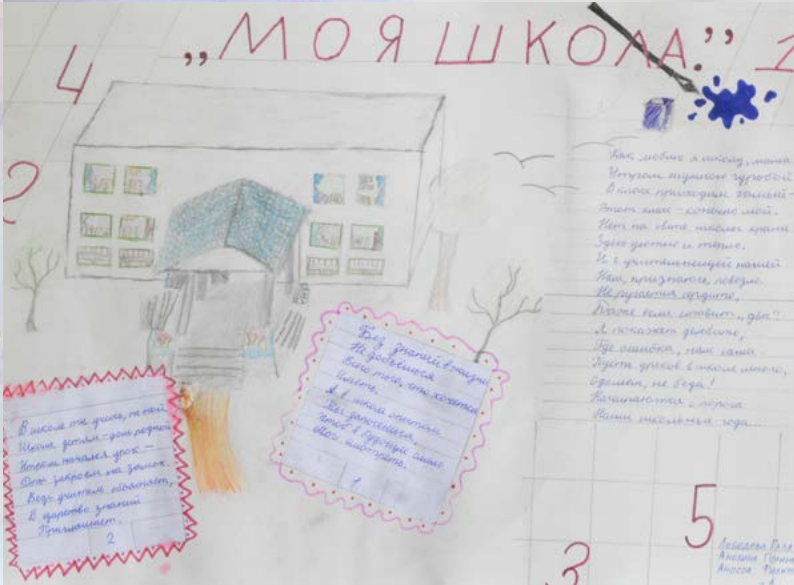 „МОЯ ШКОЛА."
1
4
2
Как люблю я школу, мама
Утром шумною гурьбой
В класс приходим
Этот класс - конечно мой.
Нет на свете школы краше
Здесь уютно и тепло.
И с учительницей нашей
Нам, признаюсь, повезло.
Не ругается сердито,
Даже если ставит „два"!
А покажет деловито,
Где ошибка, нам она.
Пусть уроков в школе много,
одолеем, не беда!
Начинаются с порога
Наши школьные года...
Без знаний в жизни
Не добьёшься
Всего того, что хочется
иметь.
А в школе опытом
Ты запасёшься,
Чтоб в будущее смело
Мог смотреть.
1
В школе ты учись, не пой
Школа детям - дом родной
Вначале урок —
закроем на замок.
Ведь учитель объясняет,
В царство знаний
Приглашает.
2
5
3
Лебедева
Анохина
Аносов